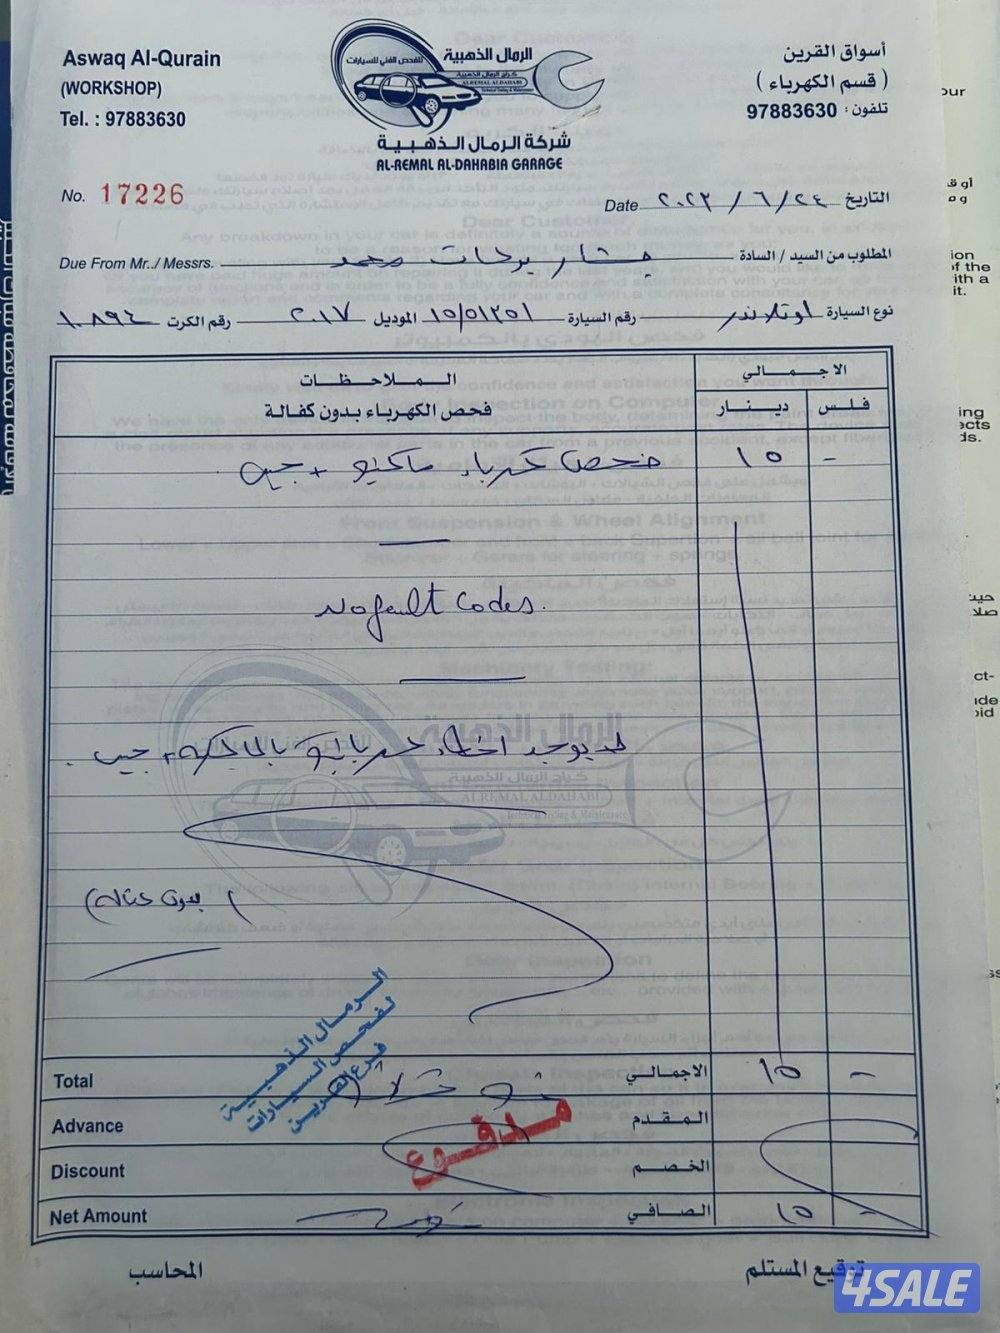 Aswaq Al-Qurain
(WORKSHOP)
Tel. : 97883630
الرمال الذهبية
للفحص الفني للسيارات
كراج الرمال الذهبية
ALREMAL ALDAHABI
Technical Testing & Maintenance
شركة الرمال الذهبية
AL-REMAL AL-DAHABIA GARAGE
أسواق القرين
( قسم الكهرباء )
تلفون: 97883630
No. 17226
Date ٢٠٢٣ / ٦ / ٢٤ التاريخ
Due From Mr../ Messrs. بركات محمد المطلوب من السيد / السادة
نوع السيارة اوتلاندر رقم السيارة ١٥/٥١٢٥١ الموديل ٢٠١٧ رقم الكرت ١٠٨٩٤
الملاحظات
الاجمالي
فحص الكهرباء بدون كفالة
دينار فلس
فحص كهرباء ماكينة + جير
١٥ -
No fault Codes.
لا يوجد أخطاء كهربائية بالماكينة + جير .
( بدون كفالة )
الرمال الذهبية
لفحص السيارات
فرع القرين
Total الاجمالي ١٥ -
Advance المقدم
مدفوع
Discount الخصم
Net Amount الصافي ١٥ -
المحاسب
توقيع المستلم
4SALE